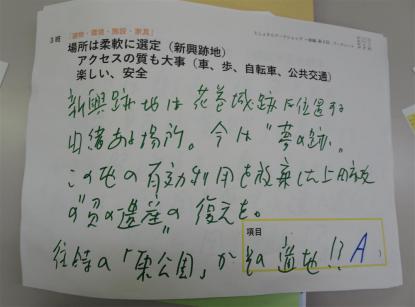 3班
(建物・環境・施設・家具)
場所は柔軟に選定（新興跡地）
アクセスの質も大事（車、歩、自転車、公共交通）
楽しい、安全
新興跡地は花巻城跡に位置する
由緒ある場所。今は"夢の跡"
この地の有効利用を放棄した上
の"負の遺産"の復元を。
往時の「東公園」がその適地!!
項目
A